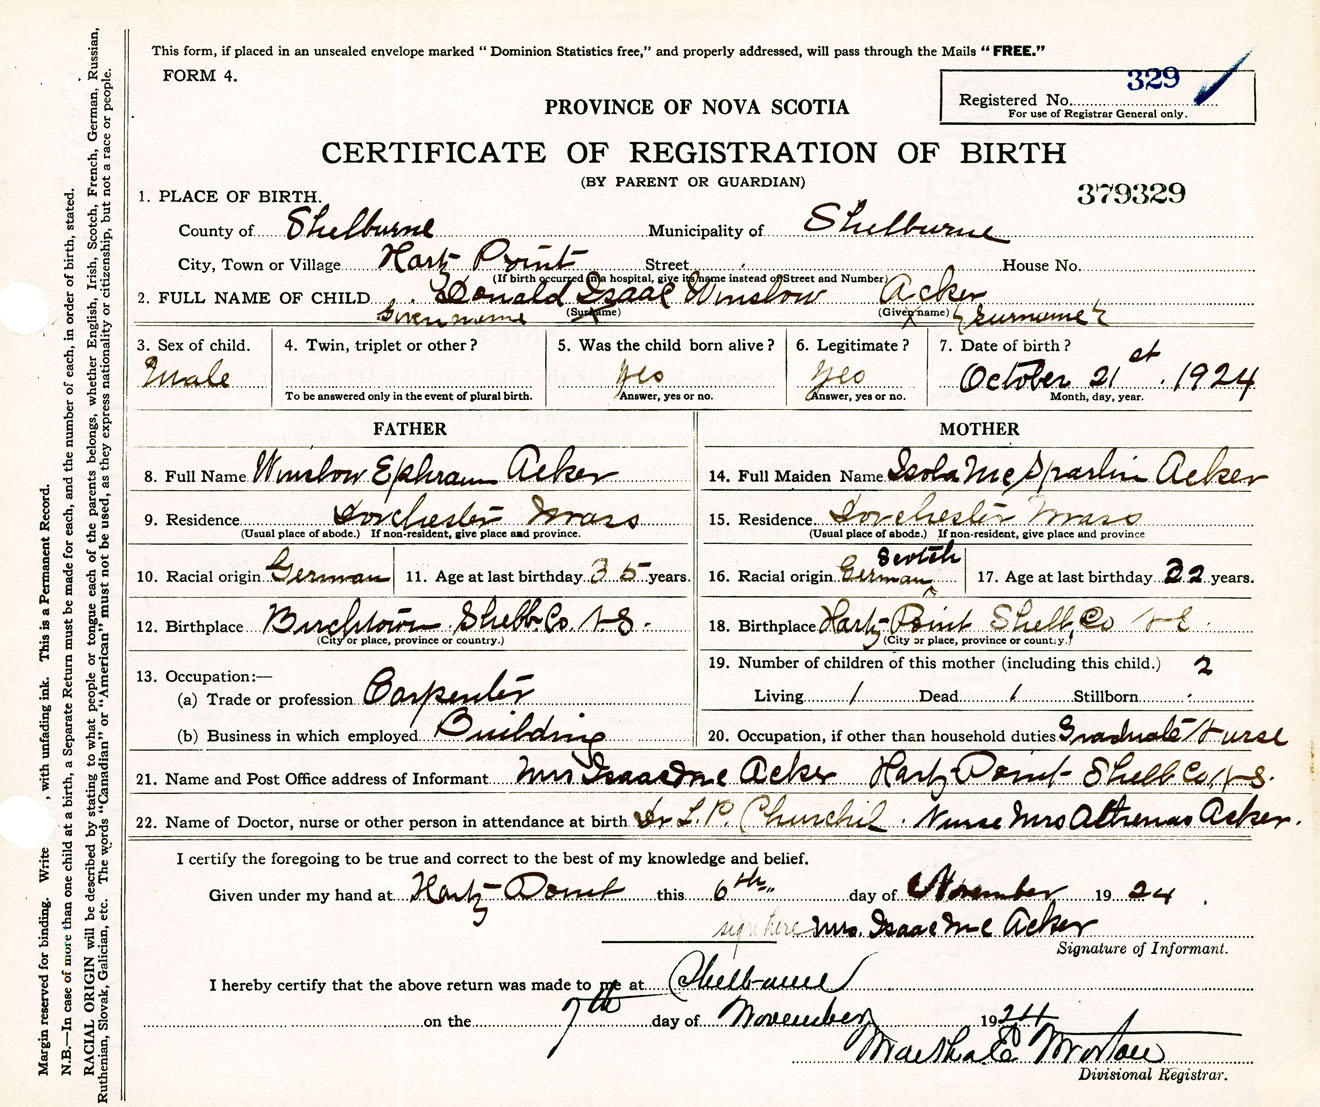 This form, if placed in an unsealed envelope marked “ Dominion Statistics free,” and properly addressed, will pass through the Mails “ FREE.”
FORM 4.
329
Registered No.
For use of Registrar General only.
PROVINCE OF NOVA SCOTIA
CERTIFICATE OF REGISTRATION OF BIRTH
(BY PARENT OR GUARDIAN)
379329
1. PLACE OF BIRTH.
County of Shelburne Municipality of Shelburne
City, Town or Village Hartz Point Street House No.
(If birth occurred in a hospital, give its name instead of Street and Number)
2. FULL NAME OF CHILD Donald Isaac Winslow Acker
Given name (Surname) (Given name) (Surname)
3. Sex of child. Male
4. Twin, triplet or other ?
To be answered only in the event of plural birth.
5. Was the child born alive ? Yes
Answer, yes or no.
6. Legitimate ? Yes
Answer, yes or no.
7. Date of birth ?
October 21st 1924
Month, day, year.
FATHER
8. Full Name Winslow Ephraim Acker
9. Residence Dorchester Mass
(Usual place of abode.) If non-resident, give place and province.
10. Racial origin German 11. Age at last birthday 35 years.
12. Birthplace Birchtown Shelb. Co. N S.
(City or place, province or country.)
13. Occupation:—
(a) Trade or profession Carpenter
(b) Business in which employed Building
MOTHER
14. Full Maiden Name Isola Mc Acker
15. Residence Dorchester Mass
(Usual place of abode.) If non-resident, give place and province
16. Racial origin German Scotch 17. Age at last birthday 22 years.
18. Birthplace Hartz Point Shelb. Co N S.
(City or place, province or country.)
19. Number of children of this mother (including this child.) 2
Living 1 Dead 1 Stillborn
20. Occupation, if other than household duties Graduate Nurse
21. Name and Post Office address of Informant Mrs Isaac Mc Acker Hartz Point Shelb Co N S.
22. Name of Doctor, nurse or other person in attendance at birth Dr L. P. Churchil. Nurse Mrs Athenas Acker.
I certify the foregoing to be true and correct to the best of my knowledge and belief.
Given under my hand at Hartz Point this 6th day of November 1924.
sign here Mrs. Isaac Mc Acker
Signature of Informant.
I hereby certify that the above return was made to me at Shelburne
on the 7th day of November 1924
Martha E Morton
Divisional Registrar.
Margin reserved for binding. Write , with unfading ink. This is a Permanent Record.
N.B.—In case of more than one child at a birth, a Separate Return must be made for each, and the number of each, in order of birth, stated.
RACIAL ORIGIN will be described by stating to what people or tongue each of the parents belongs, whether English, Irish, Scotch, French, German, Russian,
Ruthenian, Slovak, Galician, etc. The words “Canadian” or “American” must not be used, as they express nationality or citizenship, but not a race or people.